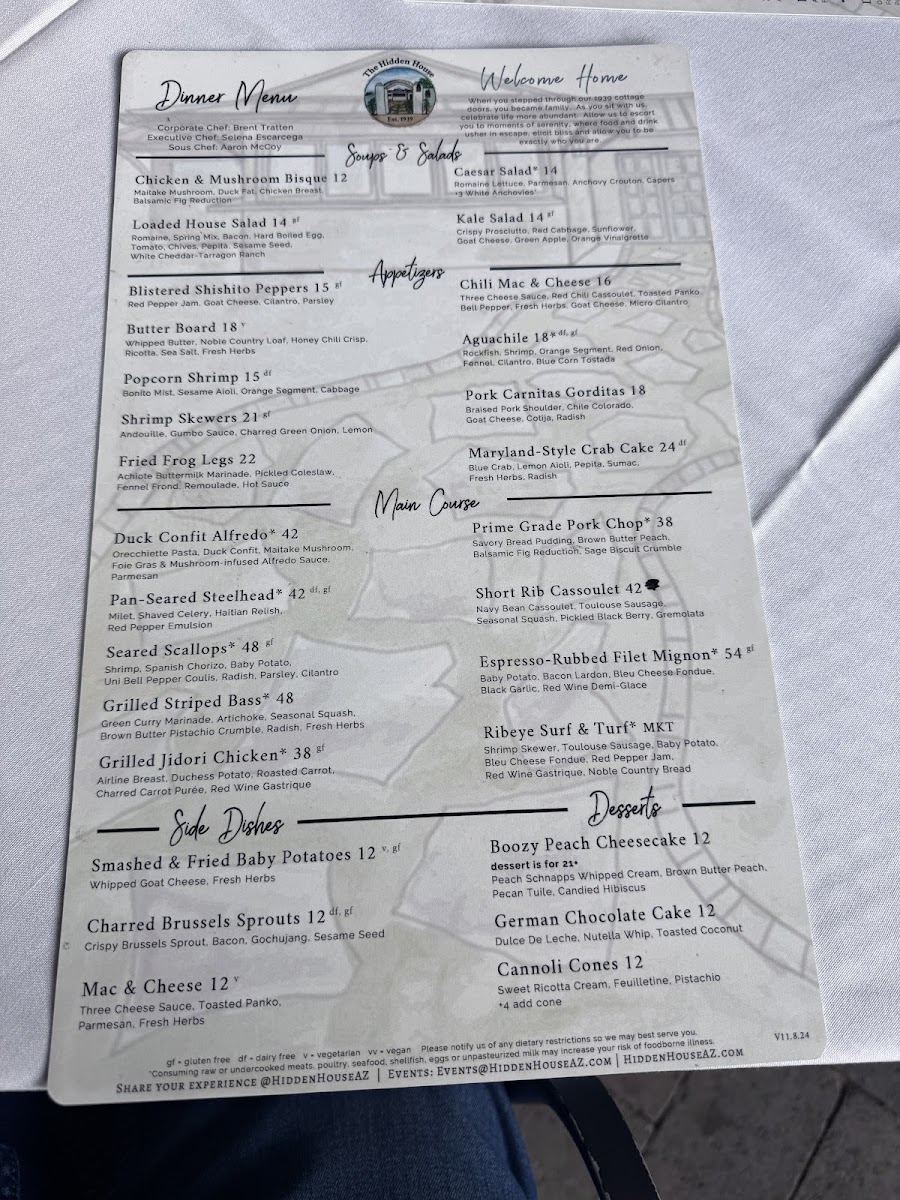 Dinner Menu
Corporate Chef: Brent Tratten
Executive Chef: Selena Escarcega
Sous Chef: Aaron McCoy
The Hidden House
Est. 1939
Welcome Home
When you stepped through our 1939 cottage
doors, you became family. As you sit with us,
celebrate life more abundant. Allow us to escort
you to moments of serenity, where food and drink
usher in escape, elicit bliss and allow you to be
exactly who you are.
Soups & Salads
Chicken & Mushroom Bisque 12
Maitake Mushroom, Duck Fat, Chicken Breast,
Balsamic Fig Reduction
Loaded House Salad 14 gf
Romaine, Spring Mix, Bacon, Hard Boiled Egg,
Tomato, Chives, Pepita, Sesame Seed,
White Cheddar-Tarragon Ranch
Caesar Salad* 14
Romaine Lettuce, Parmesan, Anchovy Crouton, Capers
+3 White Anchovies*
Kale Salad 14 gf
Crispy Prosciutto, Red Cabbage, Sunflower,
Goat Cheese, Green Apple, Orange Vinaigrette
Appetizers
Blistered Shishito Peppers 15 gf
Red Pepper Jam, Goat Cheese, Cilantro, Parsley
Butter Board 18 v
Whipped Butter, Noble Country Loaf, Honey Chili Crisp,
Ricotta, Sea Salt, Fresh Herbs
Popcorn Shrimp 15 df
Bonito Mist, Sesame Aioli, Orange Segment, Cabbage
Shrimp Skewers 21 gf
Andouille, Gumbo Sauce, Charred Green Onion, Lemon
Fried Frog Legs 22
Achiote Buttermilk Marinade, Pickled Coleslaw,
Fennel Frond, Remoulade, Hot Sauce
Chili Mac & Cheese 16
Three Cheese Sauce, Red Chili Cassoulet, Toasted Panko,
Bell Pepper, Fresh Herbs, Goat Cheese, Micro Cilantro
Aguachile 18* df, gf
Rockfish, Shrimp, Orange Segment, Red Onion,
Fennel, Cilantro, Blue Corn Tostada
Pork Carnitas Gorditas 18
Braised Pork Shoulder, Chile Colorado,
Goat Cheese, Cotija, Radish
Maryland-Style Crab Cake 24 df
Blue Crab, Lemon Aioli, Pepita, Sumac,
Fresh Herbs, Radish
Main Course
Duck Confit Alfredo* 42
Orecchiette Pasta, Duck Confit, Maitake Mushroom,
Foie Gras & Mushroom-infused Alfredo Sauce,
Parmesan
Pan-Seared Steelhead* 42 df, gf
Milet, Shaved Celery, Haitian Relish,
Red Pepper Emulsion
Seared Scallops* 48 gf
Shrimp, Spanish Chorizo, Baby Potato,
Uni Bell Pepper Coulis, Radish, Parsley, Cilantro
Grilled Striped Bass* 48
Green Curry Marinade, Artichoke, Seasonal Squash,
Brown Butter Pistachio Crumble, Radish, Fresh Herbs
Grilled Jidori Chicken* 38 gf
Airline Breast, Duchess Potato, Roasted Carrot,
Charred Carrot Purée, Red Wine Gastrique
Prime Grade Pork Chop* 38
Savory Bread Pudding, Brown Butter Peach,
Balsamic Fig Reduction, Sage Biscuit Crumble
Short Rib Cassoulet 42
Navy Bean Cassoulet, Toulouse Sausage,
Seasonal Squash, Pickled Black Berry, Gremolata
Espresso-Rubbed Filet Mignon* 54 gf
Baby Potato, Bacon Lardon, Bleu Cheese Fondue,
Black Garlic, Red Wine Demi-Glace
Ribeye Surf & Turf* MKT
Shrimp Skewer, Toulouse Sausage, Baby Potato,
Bleu Cheese Fondue, Red Pepper Jam,
Red Wine Gastrique, Noble Country Bread
Side Dishes
Smashed & Fried Baby Potatoes 12 v, gf
Whipped Goat Cheese, Fresh Herbs
Charred Brussels Sprouts 12 df, gf
Crispy Brussels Sprout, Bacon, Gochujang, Sesame Seed
Mac & Cheese 12 v
Three Cheese Sauce, Toasted Panko,
Parmesan, Fresh Herbs
Desserts
Boozy Peach Cheesecake 12
dessert is for 21+
Peach Schnapps Whipped Cream, Brown Butter Peach,
Pecan Tuile, Candied Hibiscus
German Chocolate Cake 12
Dulce De Leche, Nutella Whip, Toasted Coconut
Cannoli Cones 12
Sweet Ricotta Cream, Feuilletine, Pistachio
+4 add cone
V11.8.24
gf = gluten free df = dairy free v = vegetarian vv = vegan Please notify us of any dietary restrictions so we may best serve you.
*Consuming raw or undercooked meats, poultry, seafood, shellfish, eggs or unpasteurized milk may increase your risk of foodborne illness.
Share your experience @HiddenHouseAZ | Events: Events@HiddenHouseAZ.com | HiddenHouseAZ.com